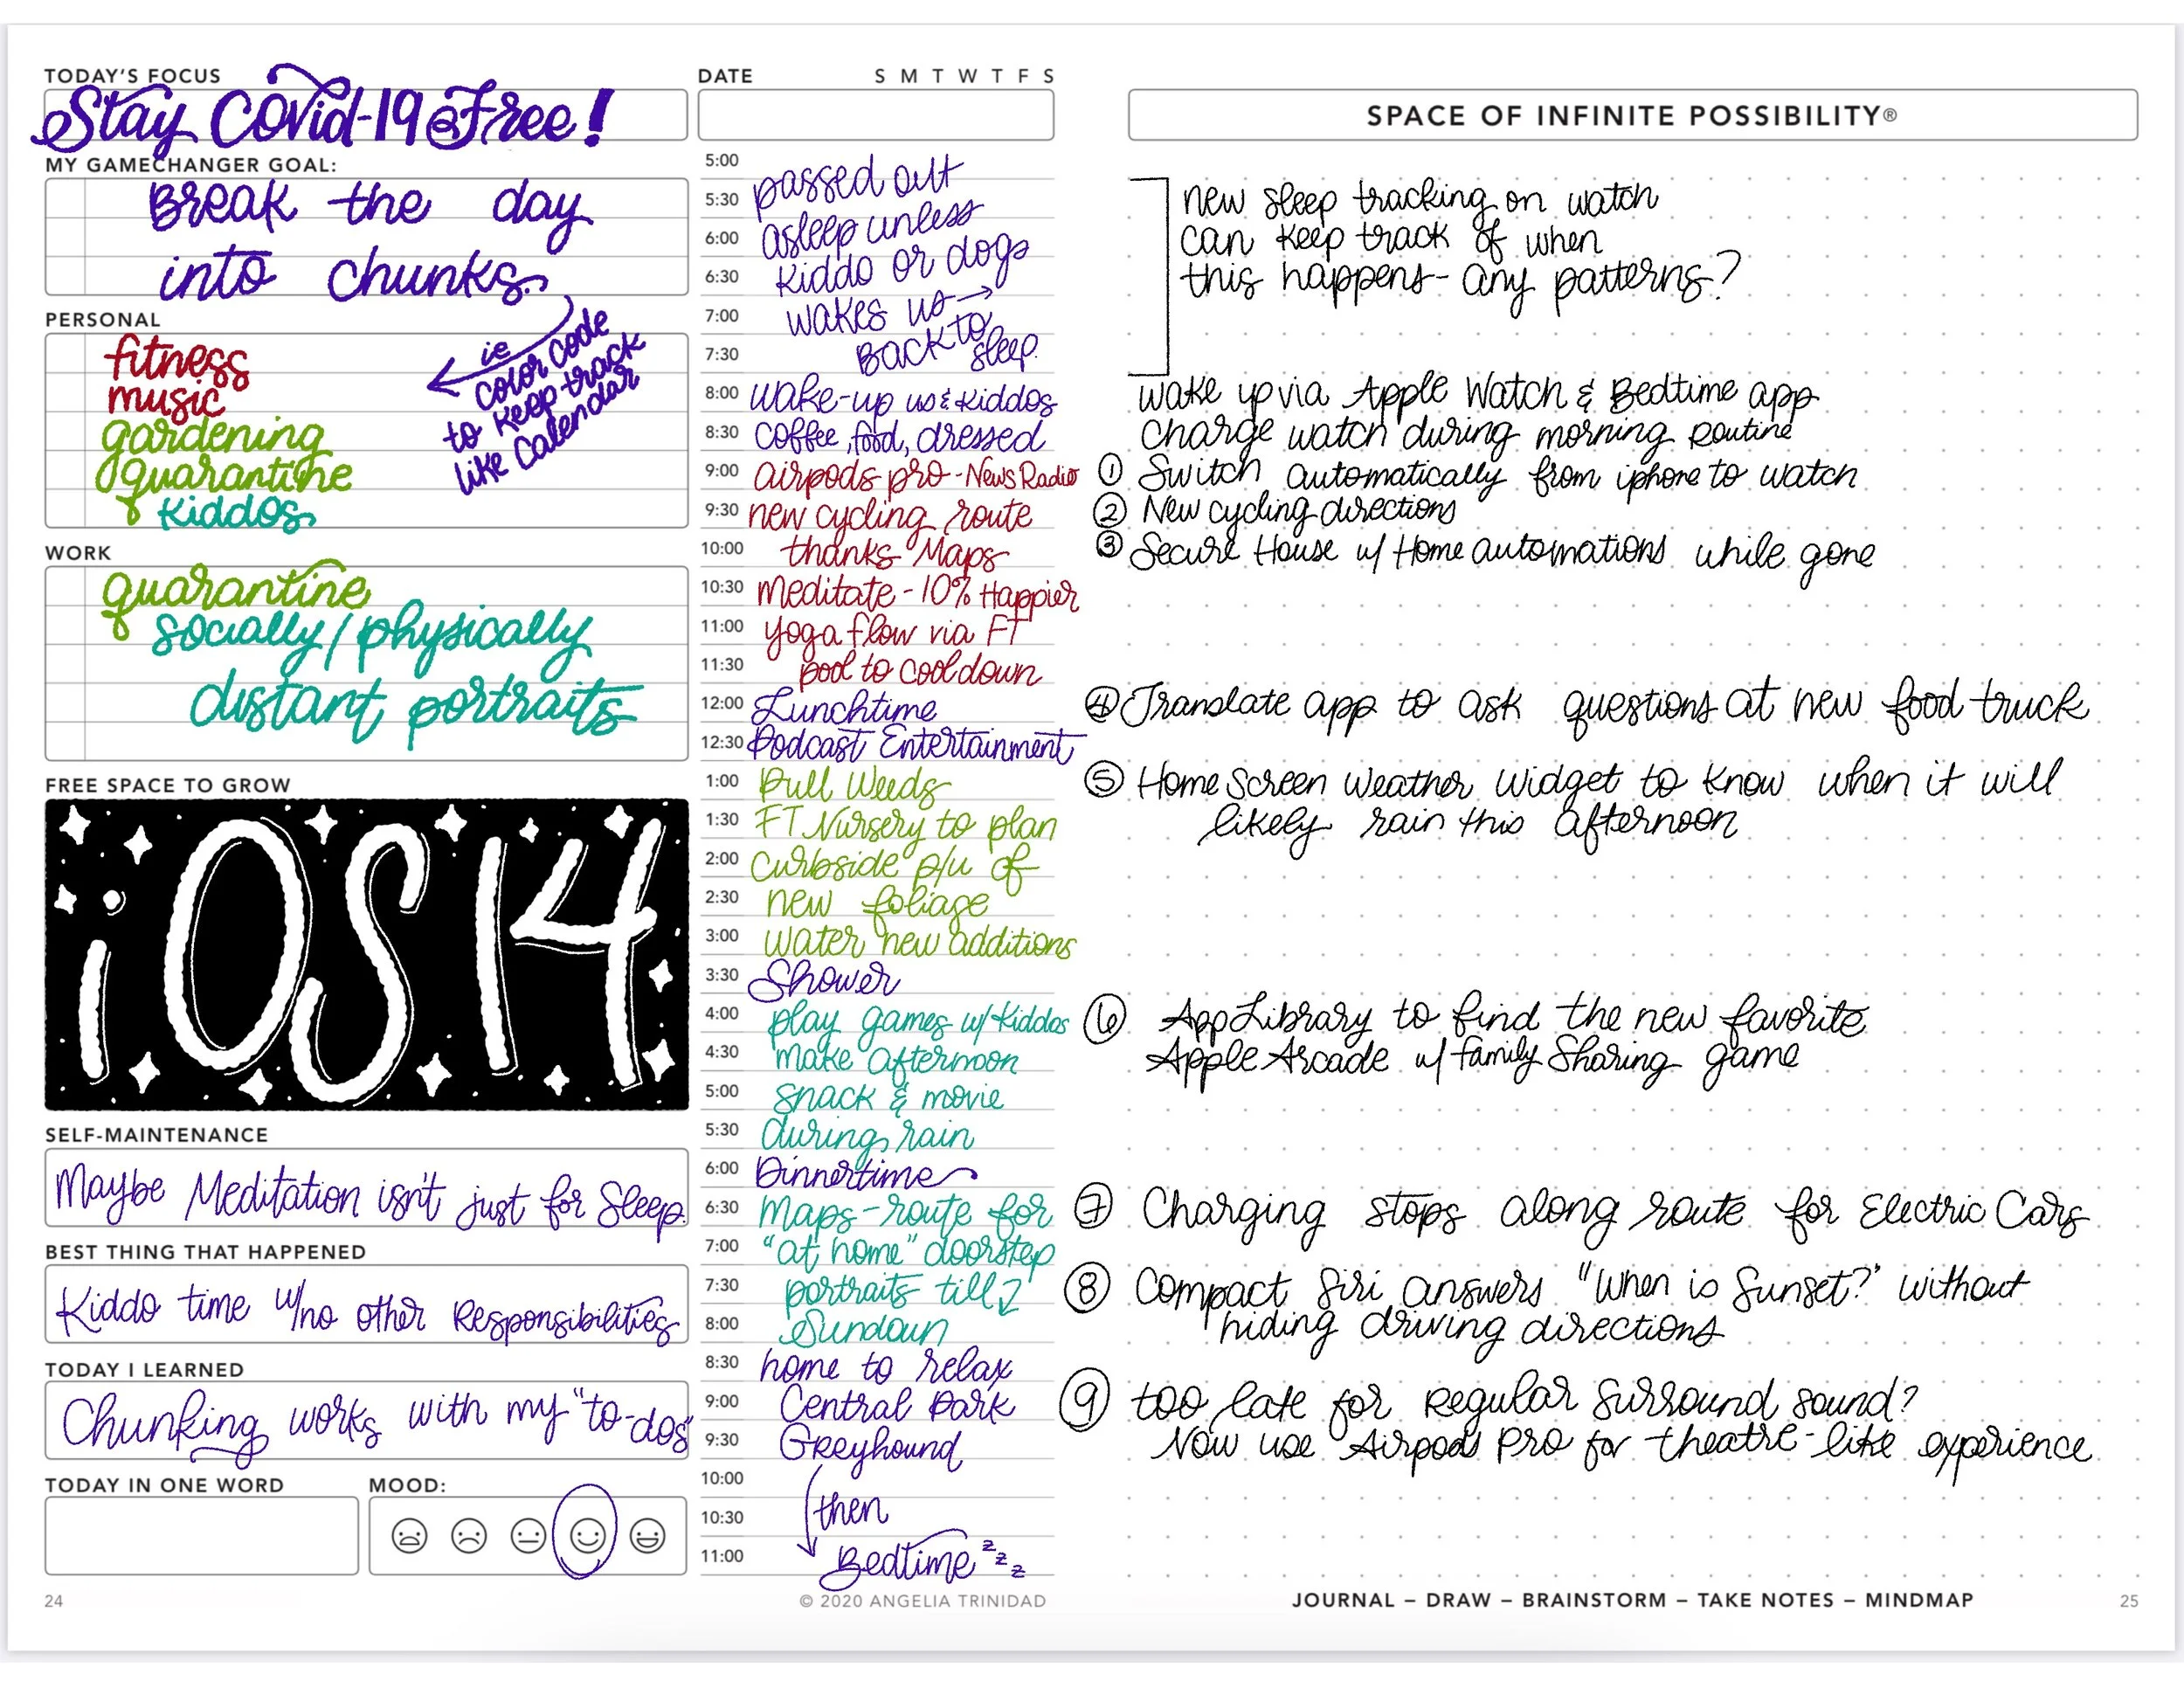 TODAY'S FOCUS
Stay Covid-19 Free!
MY GAMECHANGER GOAL:
Break the day
into chunks
PERSONAL
fitness
music
gardening
quarantine
Kiddos
ie
color code
to keep track
like Calendar
WORK
quarantine
socially/physically
distant portraits
FREE SPACE TO GROW
iOS14
SELF-MAINTENANCE
Maybe Meditation isn't just for Sleep.
BEST THING THAT HAPPENED
Kiddo time w/no other Responsibilities
TODAY I LEARNED
Chunking works with my "to-dos"
TODAY IN ONE WORD
MOOD:
24
DATE S M T W T F S
5:00 passed out
5:30 asleep unless
6:00 Kiddo or dogs
6:30 wakes us →
7:00 Back to
7:30 sleep.
8:00 wake-up us & Kiddos
8:30 coffee, food, dressed
9:00 airpods pro - News Radio
9:30 new cycling route
10:00 thanks Maps
10:30 Meditate - 10% Happier
11:00 yoga flow via FT
11:30 pool to cool down
12:00 Lunchtime
12:30 Podcast Entertainment
1:00 Pull Weeds
1:30 FT Nursery to plan
2:00 curbside p/u of
2:30 new foliage
3:00 water new additions
3:30 Shower
4:00 play games w/ Kiddos
4:30 make afternoon
5:00 snack & movie
5:30 during rain
6:00 Dinnertime
6:30 Maps - route for
7:00 "at home" doorstep
7:30 portraits till
8:00 Sundown
8:30 home to relax
9:00 Central Park
9:30 Greyhound
10:00
10:30 then
11:00 Bedtime z z z
© 2020 ANGELIA TRINIDAD
SPACE OF INFINITE POSSIBILITY®
new sleep tracking on watch
can keep track of when
this happens - any patterns?
wake up via Apple Watch & Bedtime app
charge watch during morning routine
① Switch automatically from iphone to watch
② New cycling directions
③ Secure House w/ Home automations while gone
④ Translate app to ask questions at new food truck
⑤ Home Screen Weather Widget to know when it will
likely rain this afternoon
⑥ App Library to find the new favorite
Apple Arcade w/ Family Sharing game
⑦ Charging stops along route for Electric Cars
⑧ Compact Siri answers "when is Sunset?" without
hiding driving directions
⑨ too late for Regular Surround sound?
Now use Airpods Pro for theatre-like experience
JOURNAL – DRAW – BRAINSTORM – TAKE NOTES – MINDMAP
25